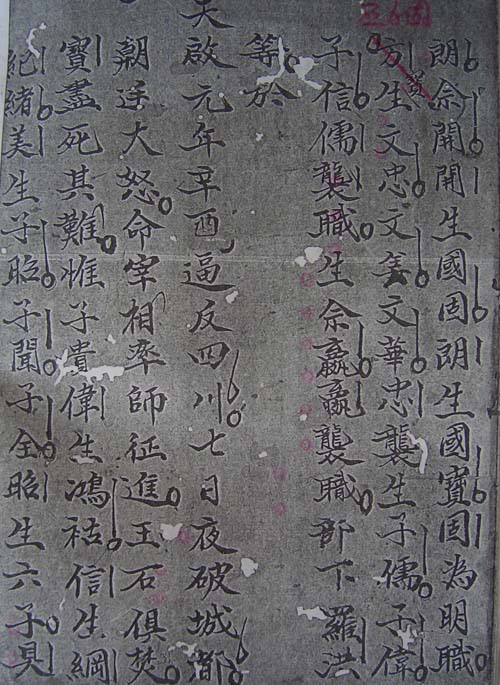 朗佘開開生國固朗生國寶固為明職
方生文忠文雋文華忠襲生子儒子偉
子信儒襲職生佘嬴嬴襲職部下羅洪
等於
天啟元年辛酉逼反四川七日夜破城都
朝廷大怒命宰相率師征進王石俱焚
寶盡死其難惟子貴偉生鴻祜信生綱
紀緒美生子昭子聞子全昭生六子具